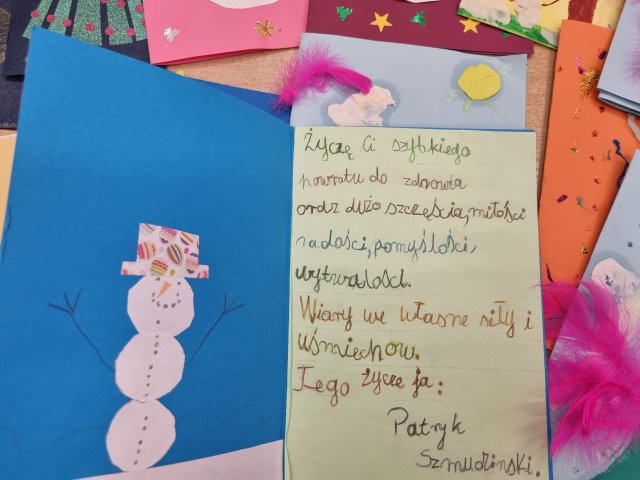 Życzę Ci szybkiego
powrotu do zdrowia
oraz dużo szczęścia, miłości
radości, pomyślości,
wytwałości.
Wiary we własne siły i
uśmiechow.
Tego życze ja:
Patryk
Szmudzinski.